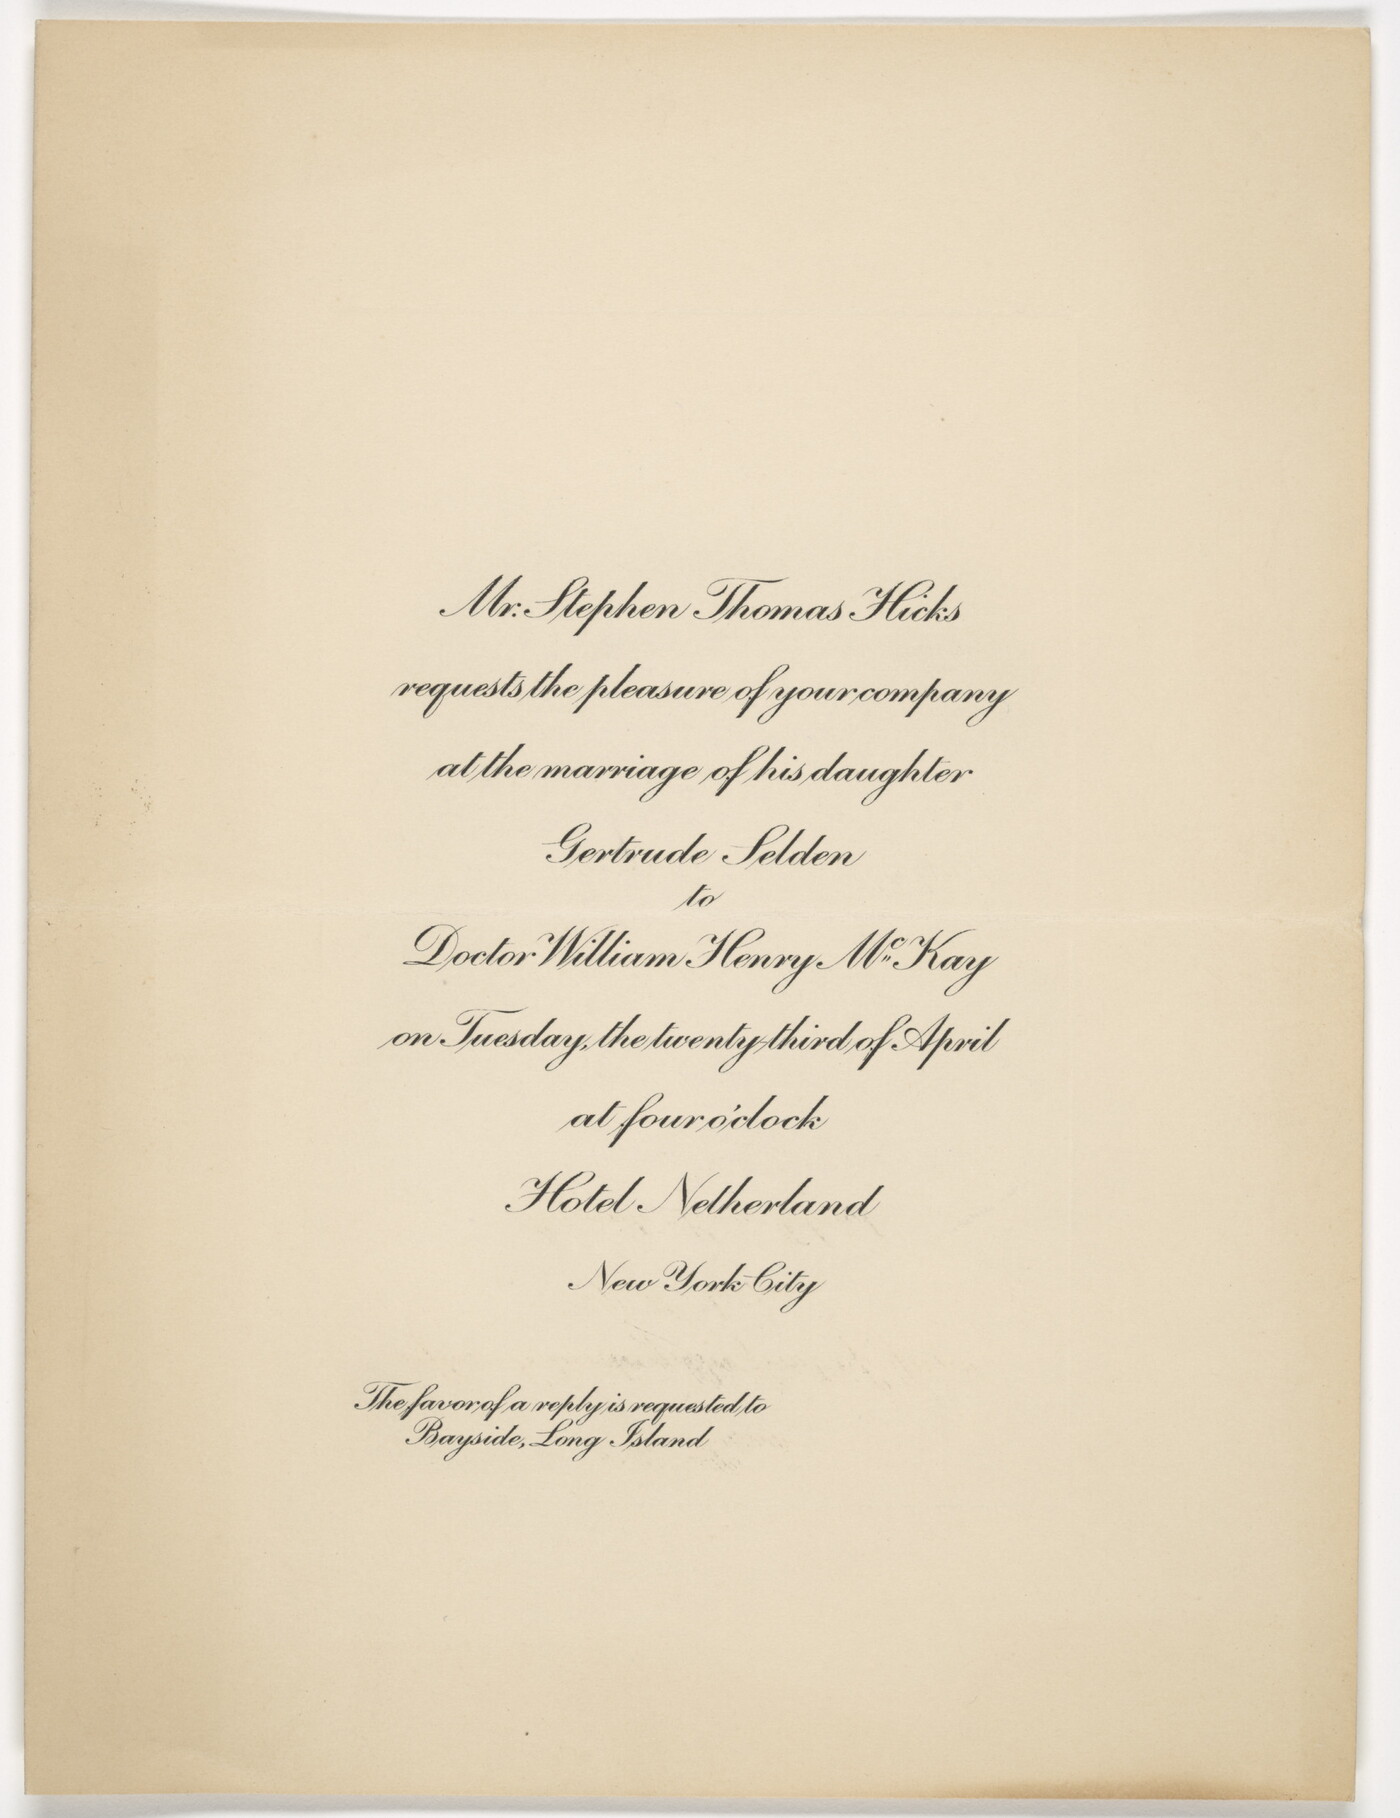 Mr. Stephen Thomas Hicks
requests the pleasure of your company
at the marriage of his daughter
Gertrude Selden
to
Doctor William Henry McKay
on Tuesday, the twenty-third of April
at four o'clock
Hotel Netherland
New York City
The favor of a reply is requested to
Bayside, Long Island